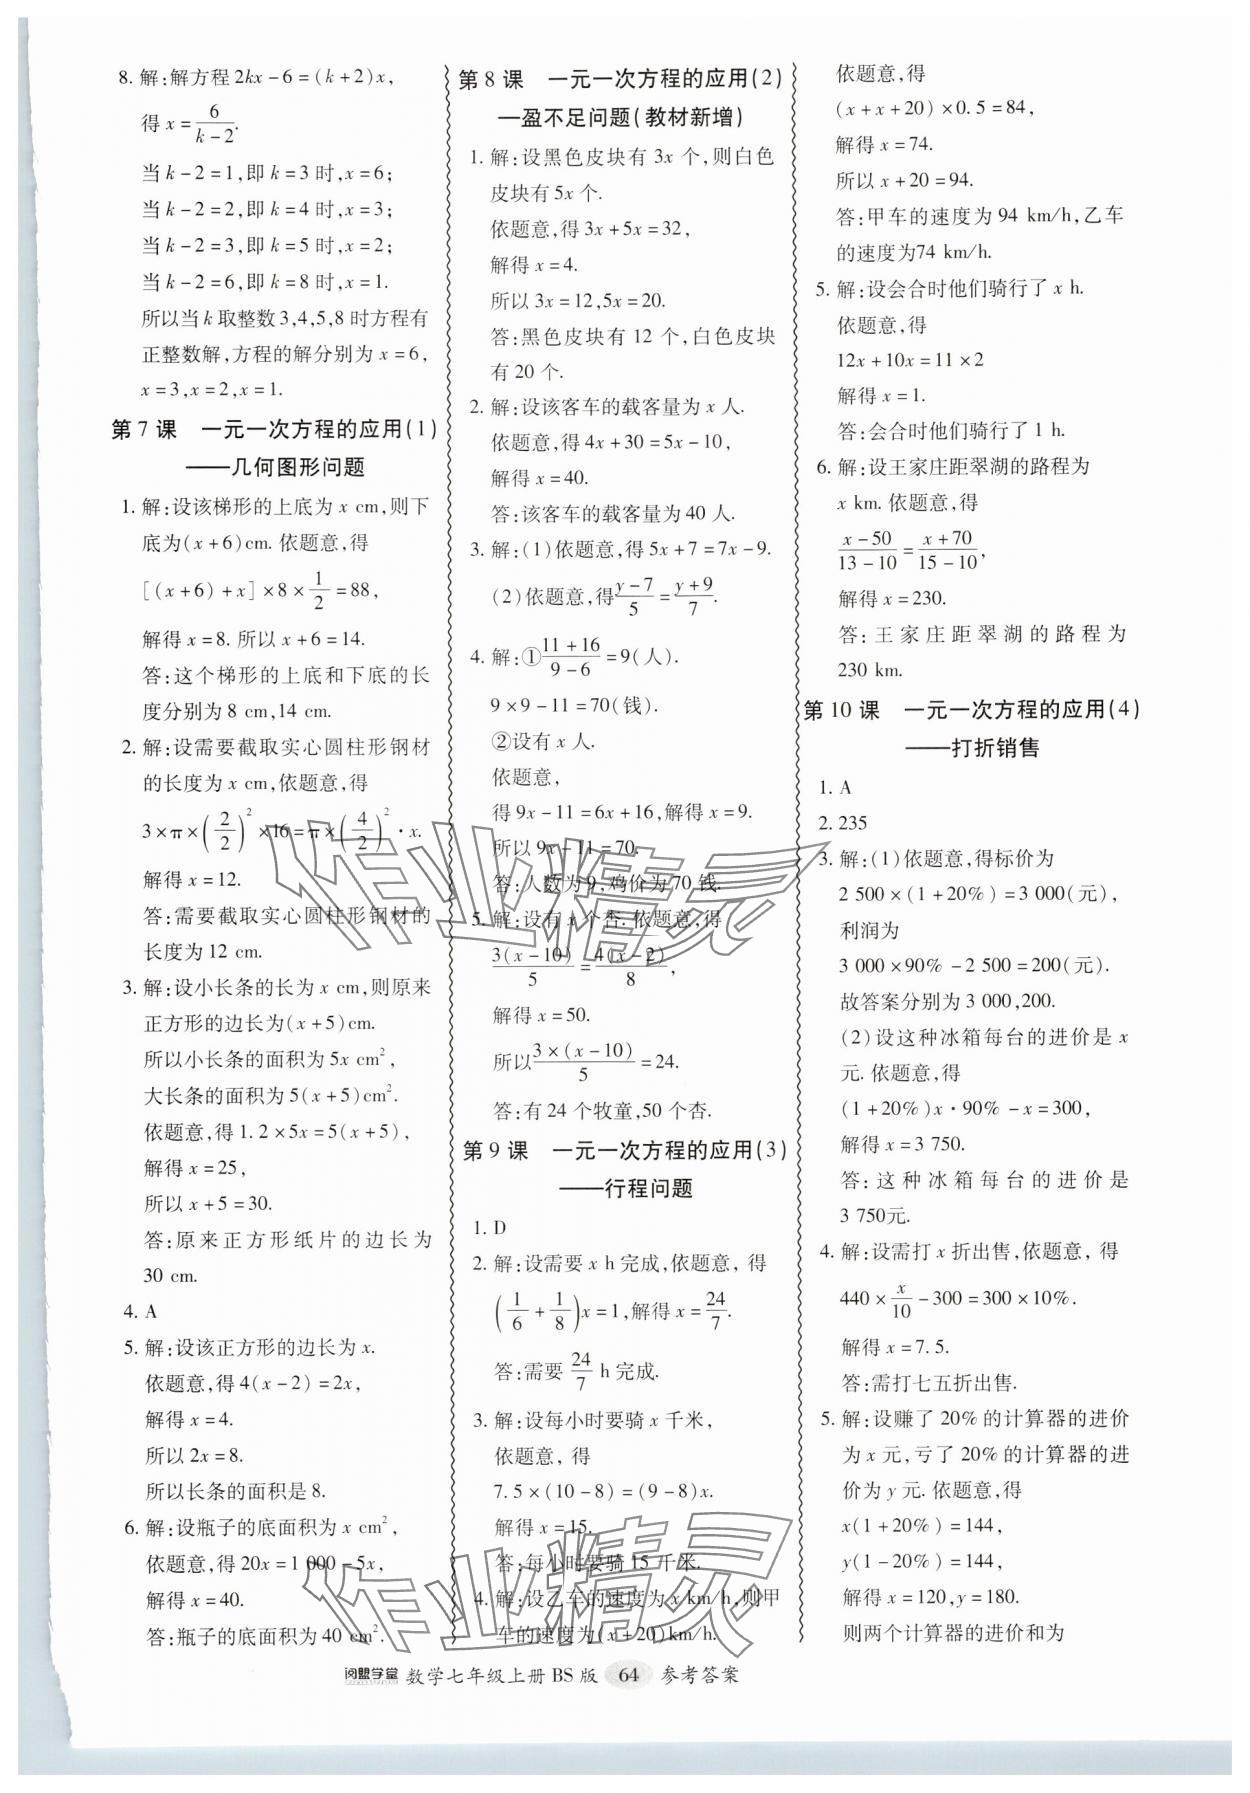 8. 解:解方程 2kx－6＝(k＋2)x,
得 x＝6/(k－2).
当 k－2＝1,即 k＝3 时,x＝6;
当 k－2＝2,即 k＝4 时,x＝3;
当 k－2＝3,即 k＝5 时,x＝2;
当 k－2＝6,即 k＝8 时,x＝1.
所以当 k 取整数 3,4,5,8 时方程有
正整数解,方程的解分别为 x＝6,
x＝3,x＝2,x＝1.
第 7 课　一元一次方程的应用(1)
——几何图形问题
1. 解:设该梯形的上底为 x cm,则下
底为(x＋6)cm. 依题意,得
[(x＋6)＋x]×8×1/2＝88,
解得 x＝8. 所以 x＋6＝14.
答:这个梯形的上底和下底的长
度分别为 8 cm,14 cm.
2. 解:设需要截取实心圆柱形钢材
的长度为 x cm,依题意,得
3×π×(2/2)²×16＝π×(4/2)²·x.
解得 x＝12.
答:需要截取实心圆柱形钢材的
长度为 12 cm.
3. 解:设小长条的长为 x cm,则原来
正方形的边长为(x＋5)cm.
所以小长条的面积为 5x cm²,
大长条的面积为 5(x＋5)cm².
依题意,得 1.2×5x＝5(x＋5),
解得 x＝25,
所以 x＋5＝30.
答:原来正方形纸片的边长为
30 cm.
4. A
5. 解:设该正方形的边长为 x.
依题意,得 4(x－2)＝2x,
解得 x＝4.
所以 2x＝8.
所以长条的面积是 8.
6. 解:设瓶子的底面积为 x cm²,
依题意,得 20x＝1 000－5x,
解得 x＝40.
答:瓶子的底面积为 40 cm².
第 8 课　一元一次方程的应用(2)
—盈不足问题(教材新增)
1. 解:设黑色皮块有 3x 个,则白色
皮块有 5x 个.
依题意,得 3x＋5x＝32,
解得 x＝4.
所以 3x＝12,5x＝20.
答:黑色皮块有 12 个,白色皮块
有 20 个.
2. 解:设该客车的载客量为 x 人.
依题意,得 4x＋30＝5x－10,
解得 x＝40.
答:该客车的载客量为 40 人.
3. 解:(1)依题意,得 5x＋7＝7x－9.
(2)依题意,得(y－7)/5＝(y＋9)/7.
4. 解:①(11＋16)/(9－6)＝9(人).
9×9－11＝70(钱).
②设有 x 人.
依题意,
得 9x－11＝6x＋16,解得 x＝9.
所以 9x－11＝70.
答:人数为 9,鸡价为 70 钱.
5. 解:设有 x 个杏. 依题意,得
3(x－10)/5＝4(x－2)/8,
解得 x＝50.
所以 3×(x－10)/5＝24.
答:有 24 个牧童,50 个杏.
第 9 课　一元一次方程的应用(3)
——行程问题
1. D
2. 解:设需要 x h 完成,依题意, 得
(1/6＋1/8)x＝1,解得 x＝24/7.
答:需要 24/7 h 完成.
3. 解:设每小时要骑 x 千米,
依题意, 得
7.5×(10－8)＝(9－8)x.
解得 x＝15.
答:每小时要骑 15 千米.
4. 解:设乙车的速度为 x km/h,则甲
车的速度为(x＋20)km/h.
依题意,得
(x＋x＋20)×0.5＝84,
解得 x＝74.
所以 x＋20＝94.
答:甲车的速度为 94 km/h,乙车
的速度为74 km/h.
5. 解:设会合时他们骑行了 x h.
依题意,得
12x＋10x＝11×2
解得 x＝1.
答:会合时他们骑行了 1 h.
6. 解:设王家庄距翠湖的路程为
x km. 依题意,得
(x－50)/(13－10)＝(x＋70)/(15－10),
解得 x＝230.
答:王家庄距翠湖的路程为
230 km.
第 10 课　一元一次方程的应用(4)
——打折销售
1. A
2. 235
3. 解:(1)依题意,得标价为
2 500×(1＋20%)＝3 000(元),
利润为
3 000×90%－2 500＝200(元).
故答案分别为 3 000,200.
(2)设这种冰箱每台的进价是 x
元. 依题意,得
(1＋20%)x·90%－x＝300,
解得 x＝3 750.
答:这种冰箱每台的进价是
3 750元.
4. 解:设需打 x 折出售,依题意, 得
440×x/10－300＝300×10%.
解得 x＝7.5.
答:需打七五折出售.
5. 解:设赚了 20% 的计算器的进价
为 x 元,亏了 20% 的计算器的进
价为 y 元. 依题意,得
x(1＋20%)＝144,
y(1－20%)＝144,
解得 x＝120,y＝180.
则两个计算器的进价和为
阅盟学堂 数学七年级上册 BS 版 64 参考答案
作业精灵
作业精灵